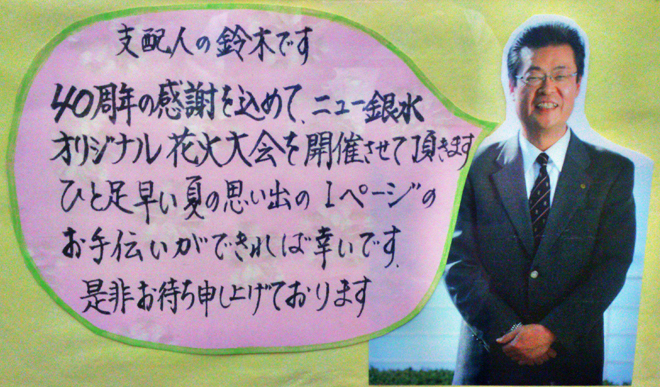 支配人の鈴木です
40周年の感謝を込めて、ニュー銀水
オリジナル花火大会を開催させて頂きます
ひと足早い夏の思い出の1ページの
お手伝いができれば幸いです.
是非お待ち申し上げております